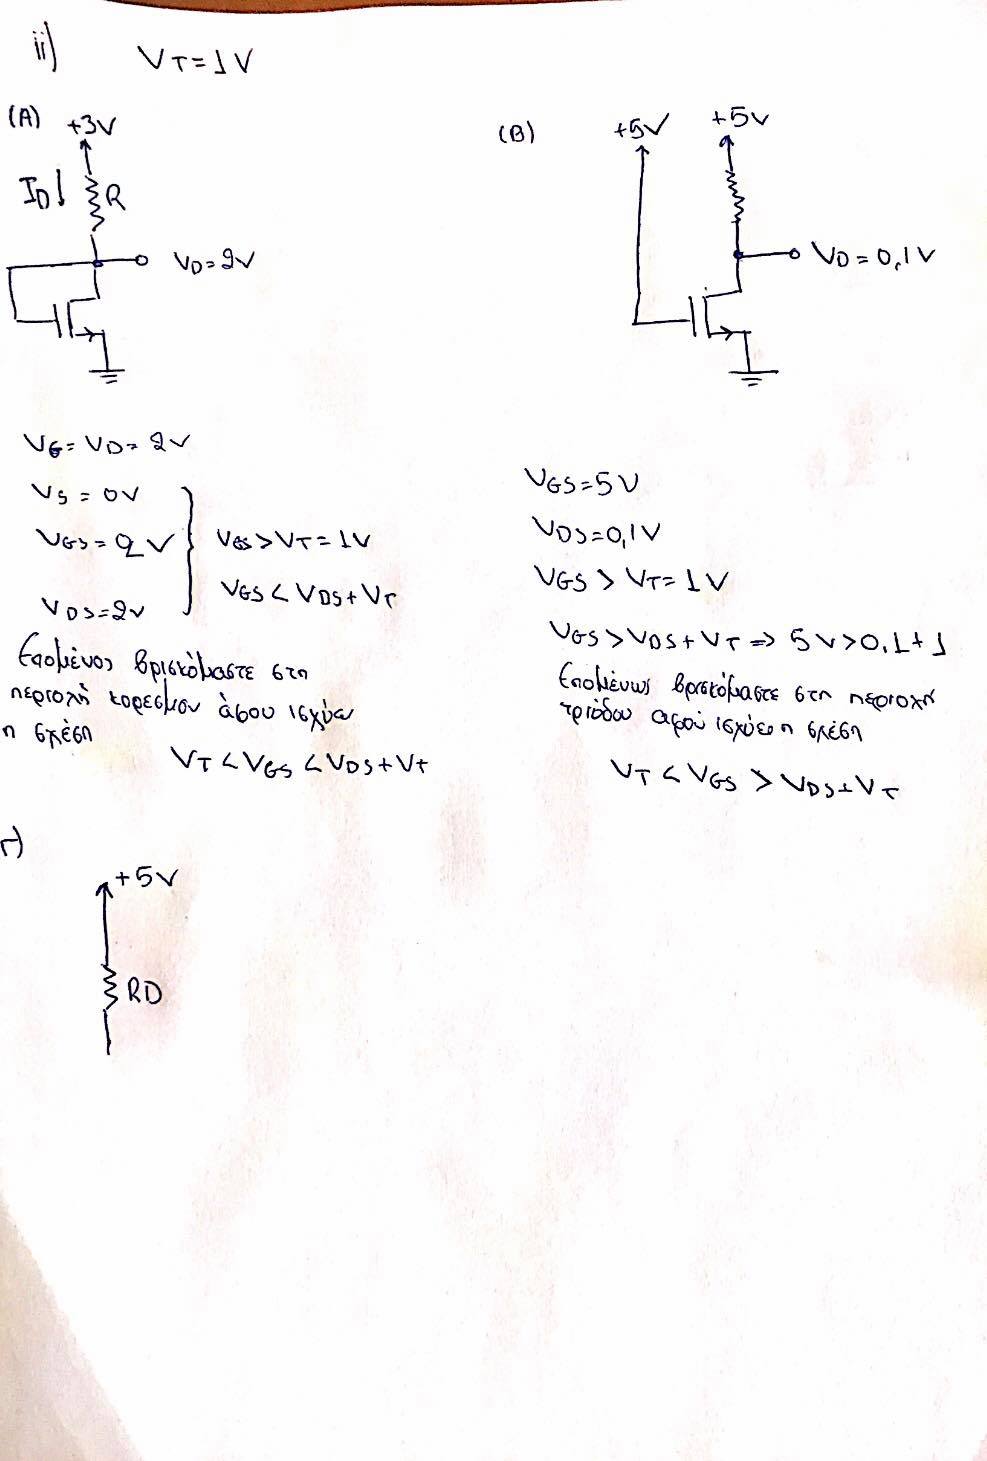 ii) VT=1V
(A) +3V
ID↓ R
VD=2V
(B) +5V +5V
VD=0,1V
VG=VD=2V
VS=0V
VGS=2V
VDS=2V
VGS>VT=1V
VGS<VDS+VT
Επομένος βρισκόμαστε στη
περιοχή κορεσμου άφου ισχύει
η σχέση
VT<VGS<VDS+Vt
VGS=5V
VDS=0,1V
VGS>VT=1V
VGS>VDS+VT⇒5V>0,1+1
Επομένως βρισκόμαστε στη περιοχή
τριόδου αφού ισχύει η σχέση
VT<VGS>VDS+VT
Γ)
+5V
RD